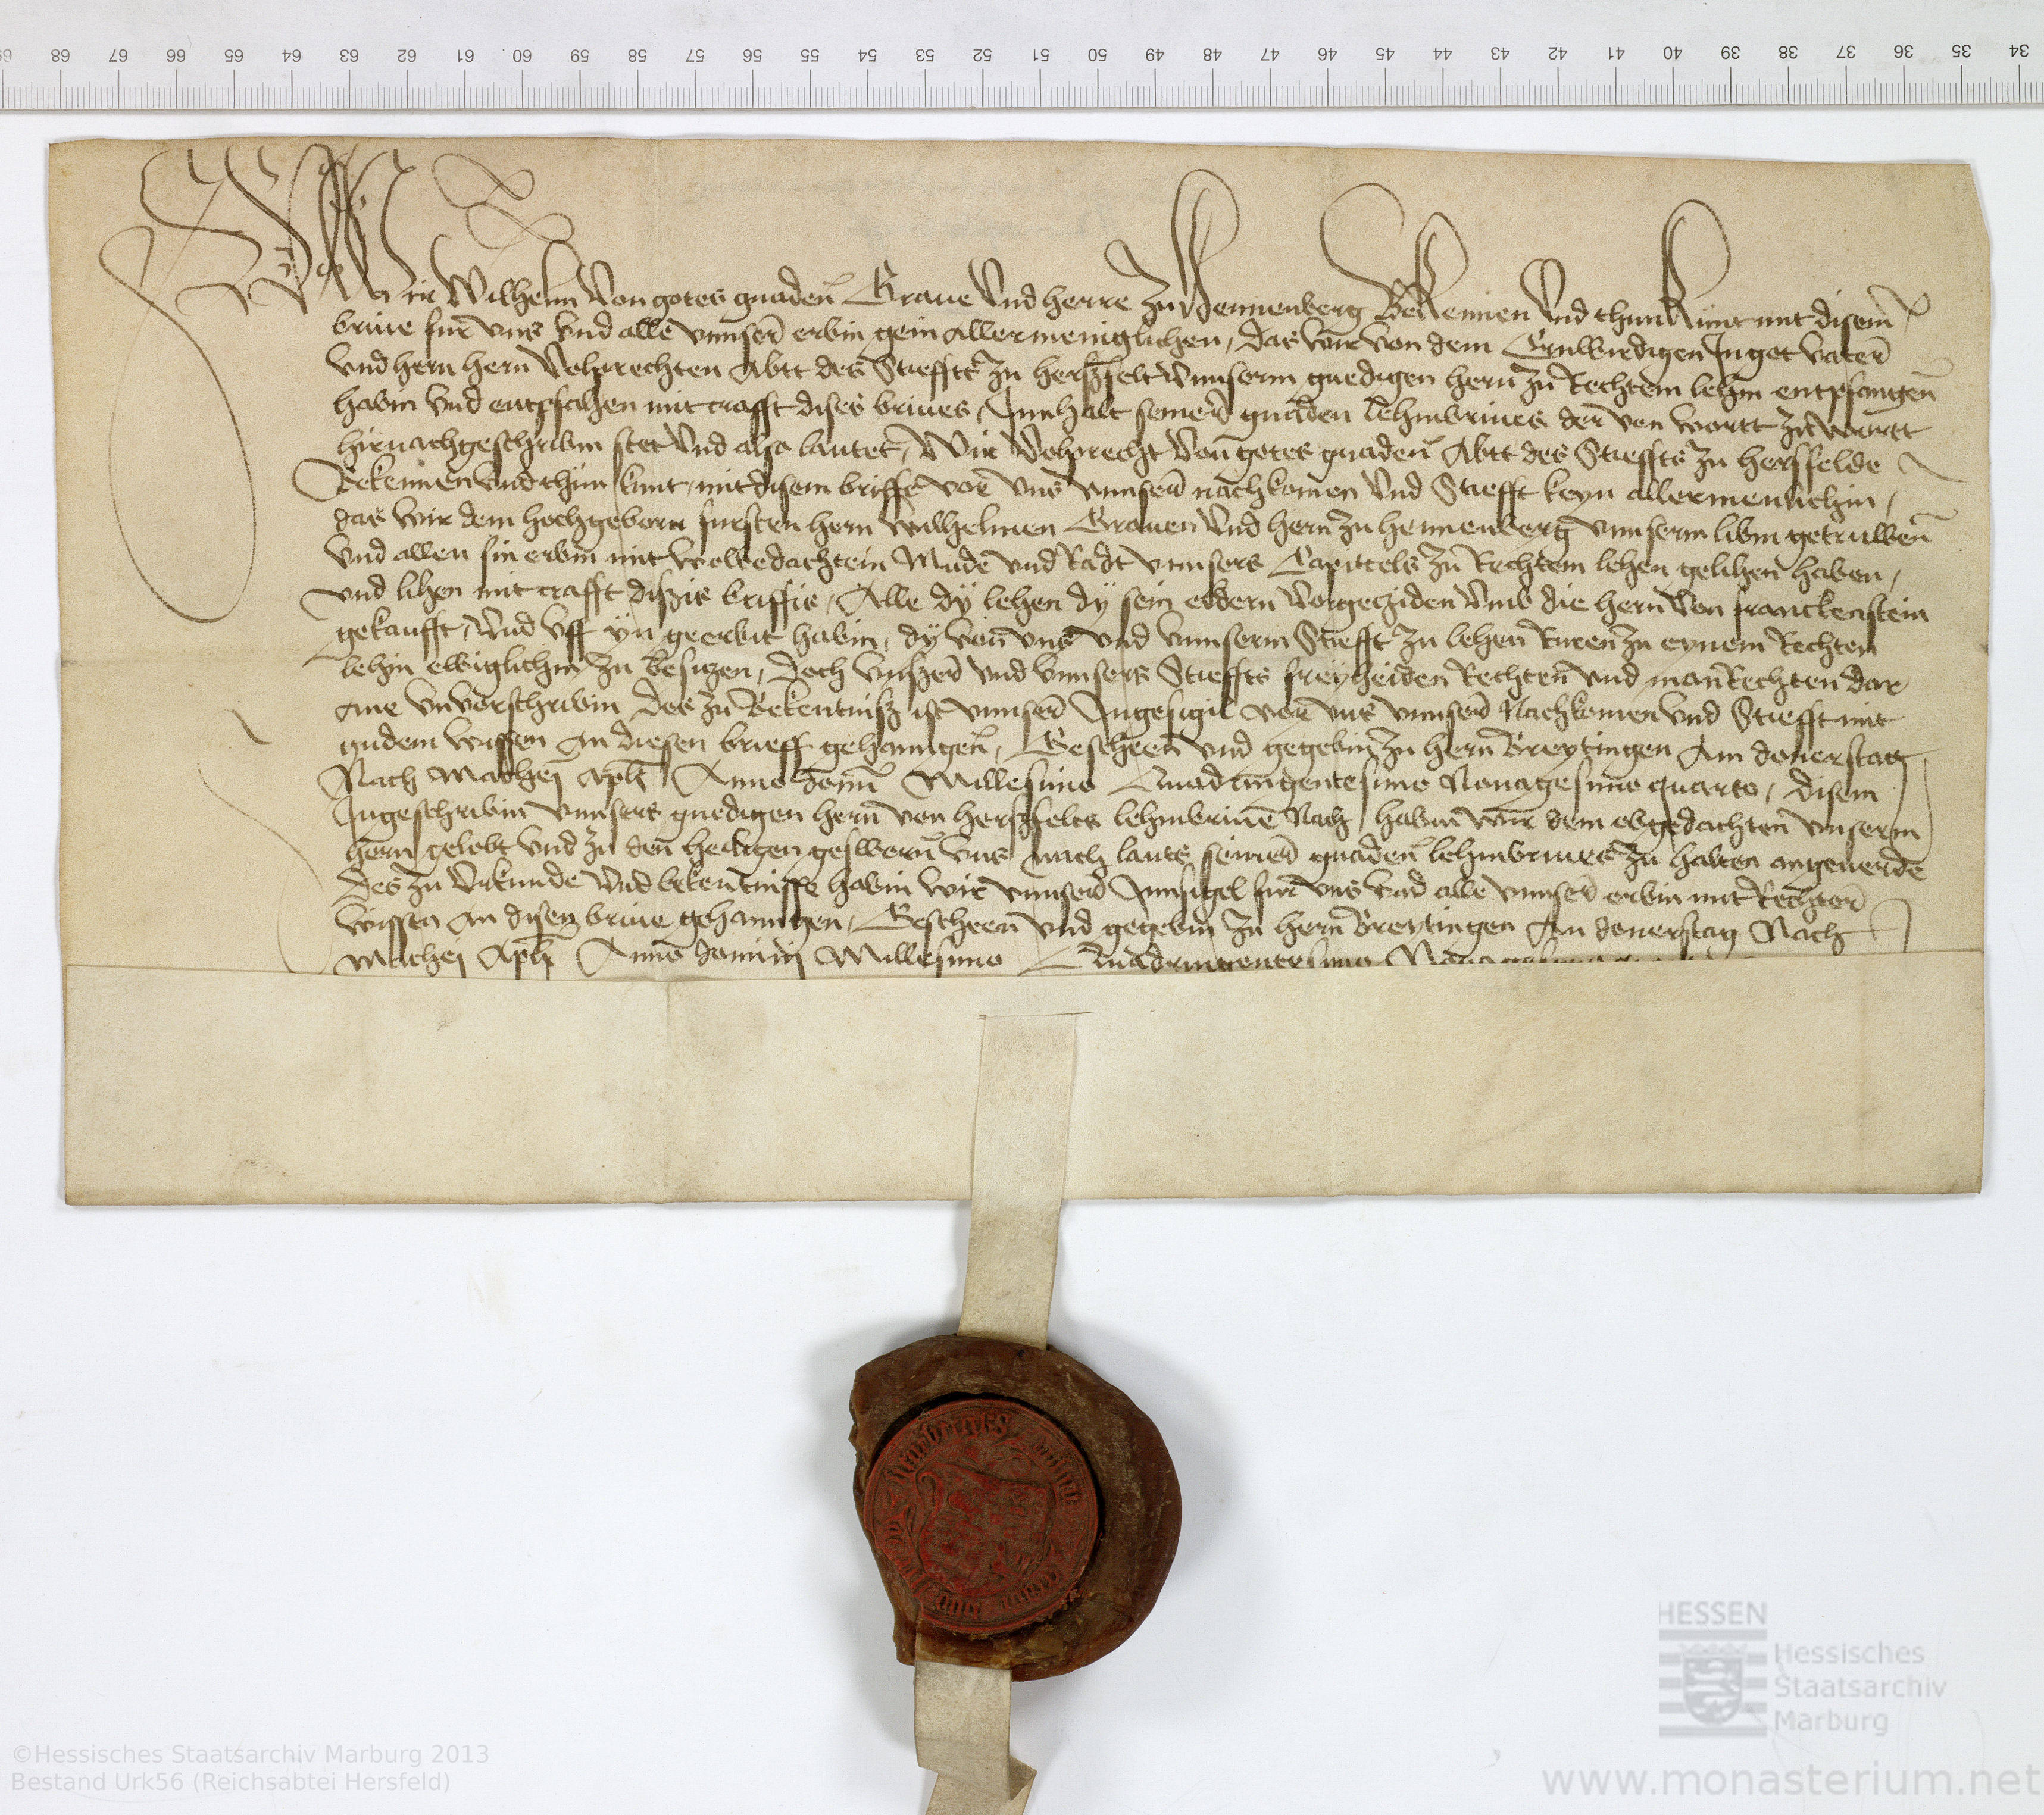 69 68 67 66 65 64 63 62 61 60 59 58 57 56 55 54 53 52 51 50 49 48 47 46 45 44 43 42 41 40 39 38 37 36 35 34
Wir Wilhelm von gotes gnaden Graue vnd herre zu Hennenberg Bekennen vnd thun kunt mit disem
briue fur vns vnd alle vnnser erbin gein allermeniglichen, das wir von dem Erwirdigen In got vater
vnd hern hern Volprechten Abtt des Stieffts zu herßfelt vnnserm gnedigen hern zu Rechtem lehin entpfangen
habin vnd entpfahen mit crafft dises briues, Innhalt seiner gnaden lehinbriues der von wortt zu wortt
hirnachgeschribin stet vnd also lautet, Wir Volprecht von gotes gnaden Abtt des Stieffts zu hersfelde
Bekennen vnd thun kunt, mit disem briffe vor vns vnnser nachkomen vnd Stiefft keyn allermenlichin,
das wir dem hochgeborn fursten hern Wilhelmen Grauen vnd hern zu hennenberg vnnserm libin getruwen
vnd allen sin erbin mit wolbedachtem Mude vnd Radt vnnsers Capittels zu Rechtem lehen gelihen haben,
vnd lihen mit crafft dißis briffis, Alle dÿ lehen dÿ sein eldern vorgeziden vmb die hern von franckenstein
gekaufft, vnd vff ÿn geerbit habin, dÿ von vns vnd vnnserm Stiefft zu lehen ruren zu eynem Rechten
lehin ewiglichin zu besitzen, doch vnßer vnd vnnsers Stieffts freyheiden Rechten vnd manRechten dar
ane vnvorschribin des zu Bekentniß ist vnnser Ingesigil vor vns vnnser Nachkomen vnd Stiefft mit
gudem wissen an diesen brieff gehanngen, Gescheen vnd gegebin zu hern Breytingen Am donerstag
Nach Mathei apli Anno domi Millesimo Quadringentesimo Nonagesimo quarto, disem
Ingeschribin vnnsers gnedigen hern von herßfelts lehinbriue Nach, habin wir dem obgedachten vnserm
hern gelobt vnd zu den heiligen gesworn vns nach lauts seiner gnaden lehinbriues zu halten angeuerde
des zu Vrkunde vnd bekentnisse habin wir vnnser Innsigel fur vns vnd alle vnnser erbin mit Rechter
wissen an disen briue gehanngen, Gescheen vnd gegebin zu hern Breytingen Am donerstag Nach
Mathei Apli Anno domini Millesimo Quadringentesimo
HESSEN
Hessisches
Staatsarchiv
Marburg
©Hessisches Staatsarchiv Marburg 2013
Bestand Urk56 (Reichsabtei Hersfeld)
www.monasterium.net